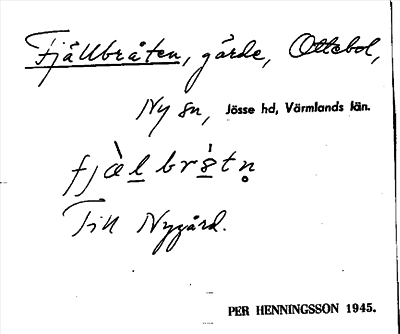 Fjällbråten, gärde, Ottebol,
Ny sn, Jösse hd, Värmlands län.
fjæ̀l brs̀tn̥
Till Nygård.
PER HENNINGSSON 1945.